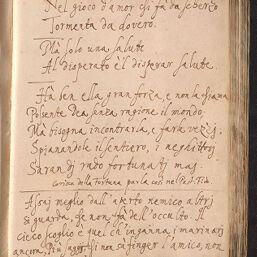 Nel gioco d'amor chi fa da scherzo
Tormenta da dovero.
Ma solo una salute
Al disperato è'l disperar salute.
Ha ben ella gran forza, e non la chiama
Possente Dea senza ragione il mondo:
Ma bisogna incontrarla, e farle vezzi,
Spianandole il sentiero, i neghittosi
Saran di rado fortunati mai.
la Fortuna
Assai meglio dall'aperto nemico altri
si guarda, se non fa dell'occulto. Il
cieco scoglio è quel ch'inganna i marinari
ancora, Più saggi chi sa finger l'amico, non